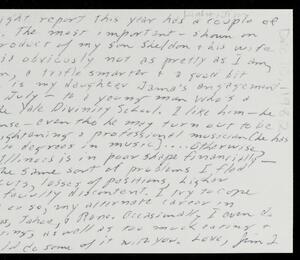 ght report this year has a couple of
. The most important - shown on
roduct of my son Sheldon & his wife
is obviously not as pretty as I am
, a trifle smarter & a good bit
. is my daughter Jama's engagement
July - to a young man who's a
he Yale Divinity School. I like him - he
nse - even tho he may turn out to be
ightening & a professional musician (he has
o degrees in music).... Otherwise,
Illinois is in poor shape financially -
he same sort of problems I fled
cuts, losses of positions, higher
faculty discontent. I try to cope
or so, my alternate career in
s, Tahoe, & Reno. Occasionally I even do
ing, as well as too much eating &
ld do some of it with you. Love, Jim